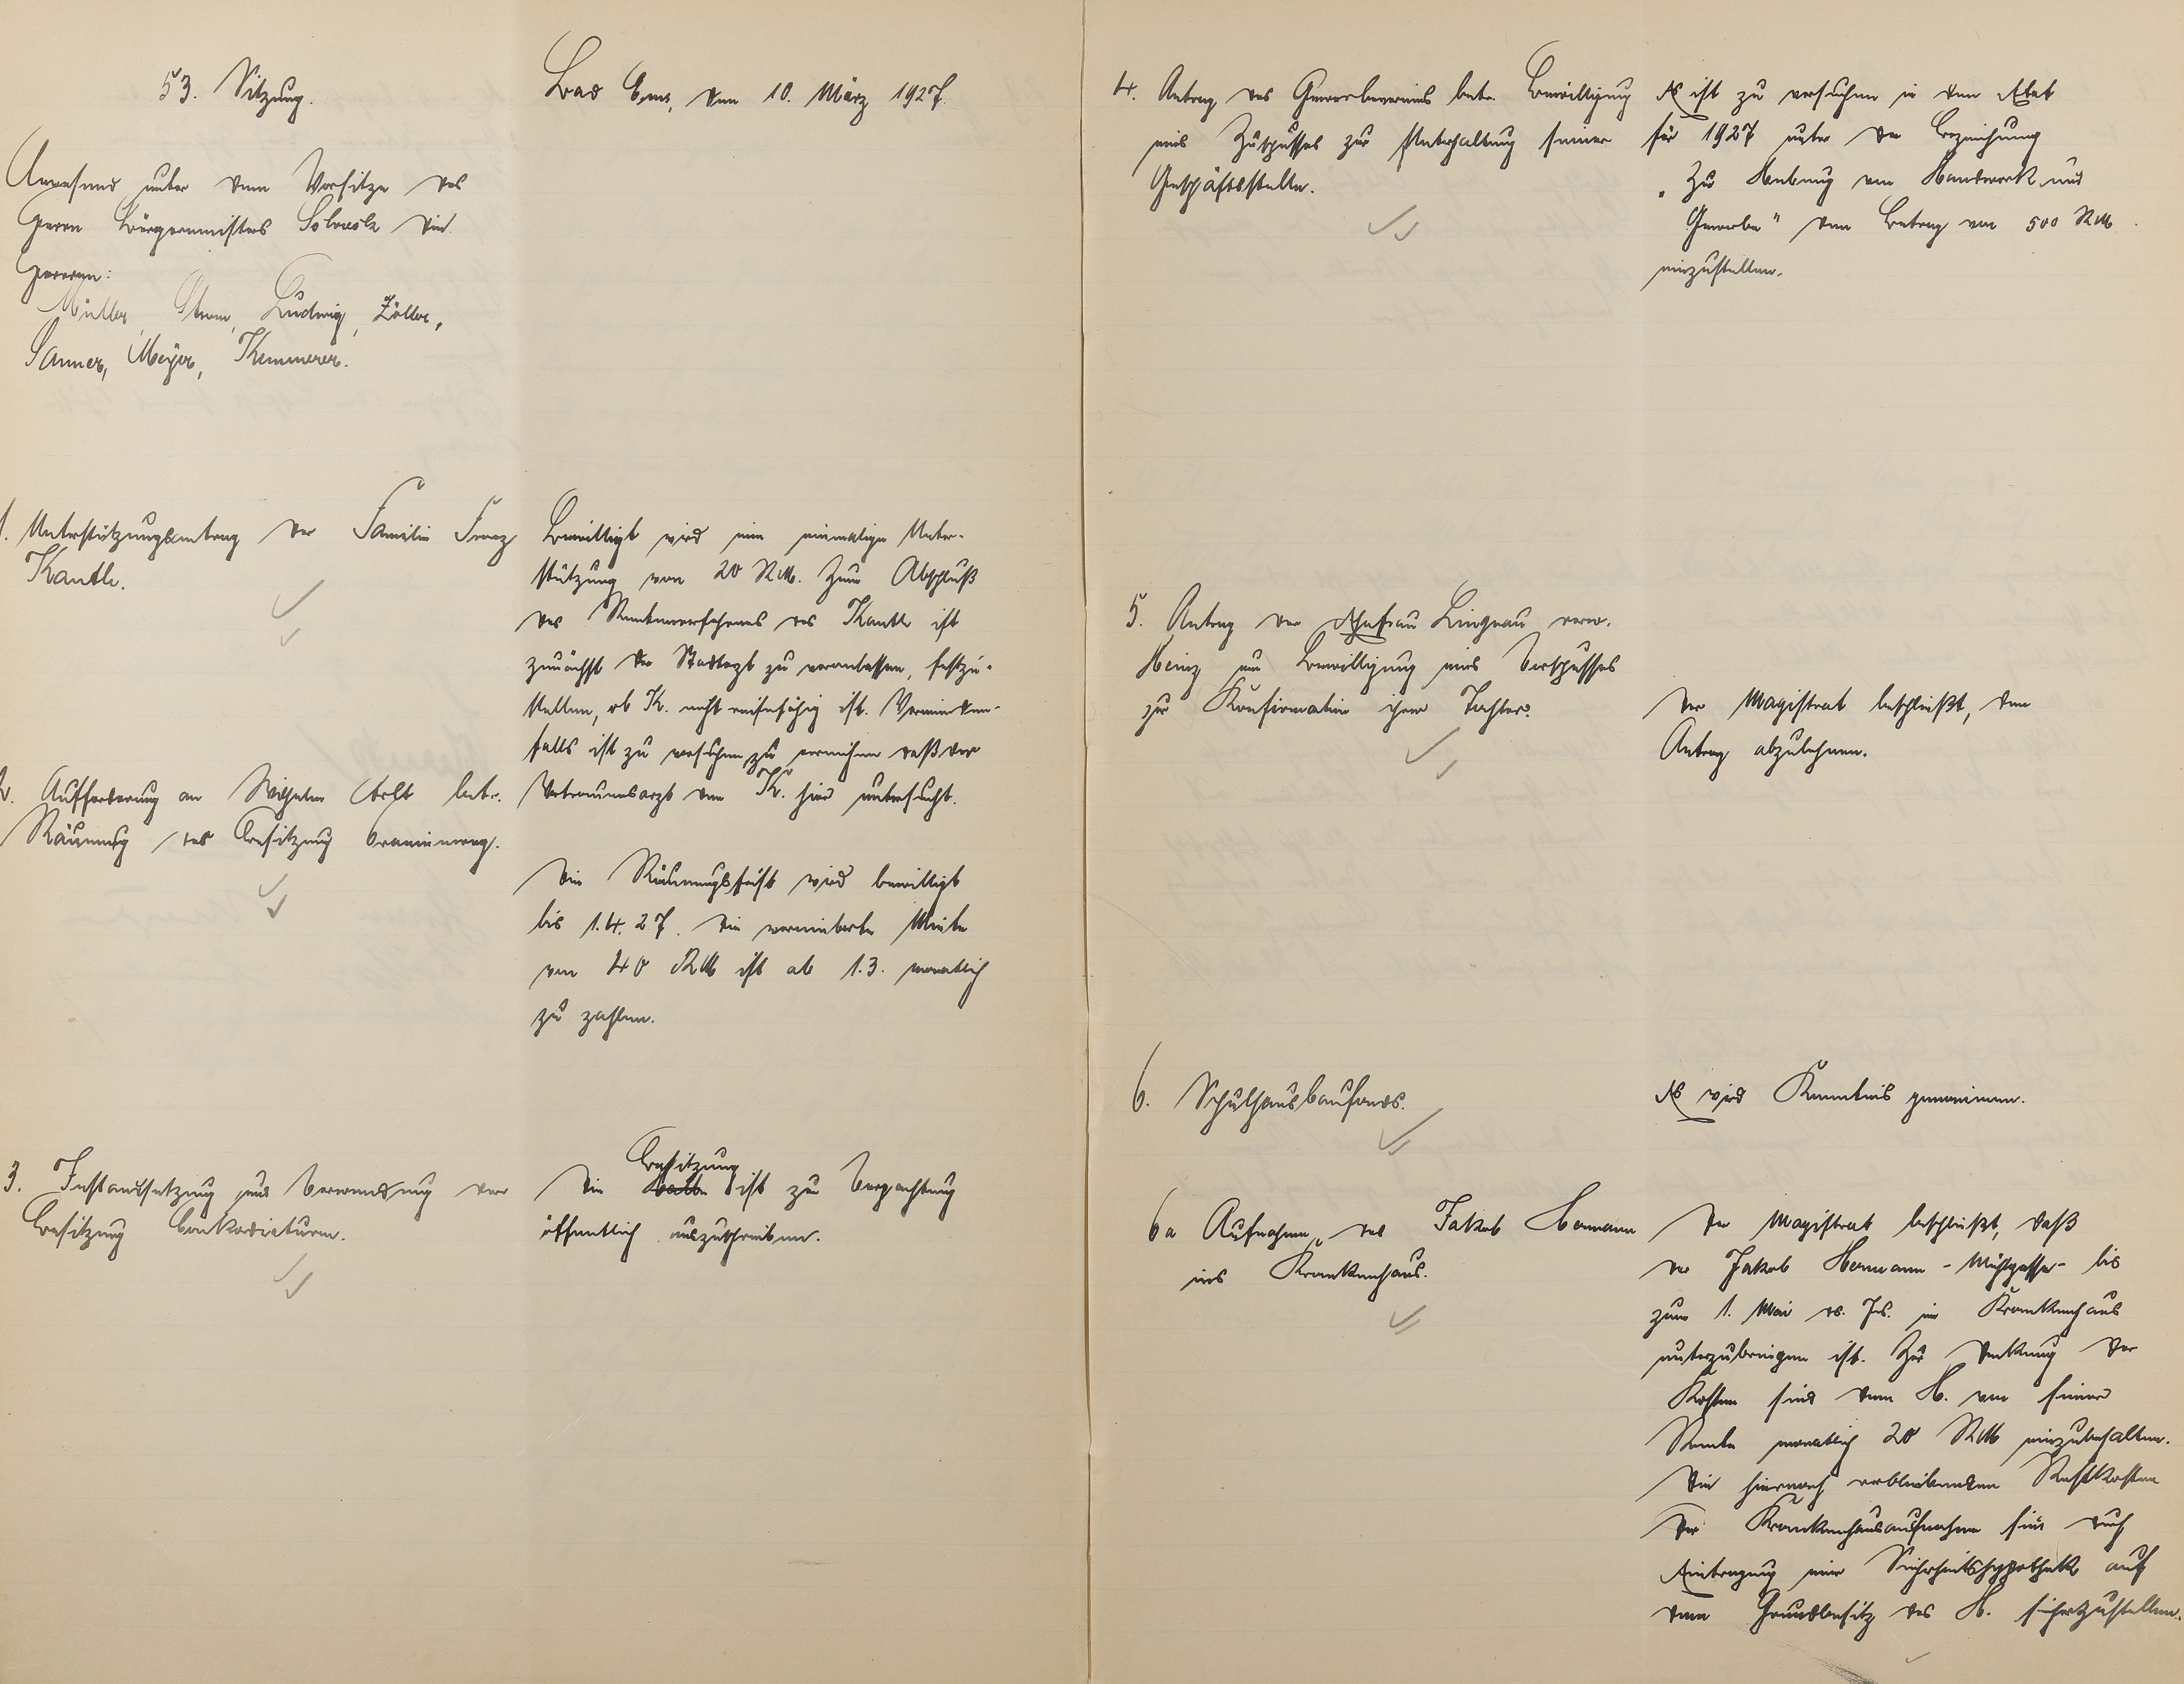 53. Sitzung.
Bad Ems, den 10. März 1927.
Anwesend unter dem Vorsitze des
Herrn Bürgermeisters die
Herren:
Müller, Ludwig, Zöller,
Sanner, Meyer, Kemmerer.
1. Unterstützungsantrag der Familie Franz
Kantl.
Bewilligt wird eine einmalige Unter-
stützung von 20 RM. Zum Abschluß
des Rentenverfahrens des Kantl ist
zunächst der Stadtarzt zu veranlassen, festzu-
stellen, ob K. nicht reisefähig ist. Verneinenden-
falls ist zu versuchen zu erreichen daß der
Vertrauensarzt den K. hier untersucht.
2. Aufforderung an Wilhelm betr.
Räumung der Besitzung Oranienweg.
Die Räumungsfrist wird bewilligt
bis 1.4.27. Die vereinbarte Miete
von 40 RM ist ab 1.3. monatlich
zu zahlen.
3. Instandsetzung und Verwendung der
Besitzung Conkordiaturm.
Die Besitzung ist zur Verpachtung
öffentlich auszuschreiben.
4. Antrag des Gewerbevereins betr. Bewilligung
eines Zuschusses zur Unterhaltung seiner
Geschäftsstelle.
Es ist zu versuchen in den Etat
für 1927 unter der Bezeichnung
"Zur Hebung von Handwerk und
Gewerbe" den Betrag von 500 RM
einzustellen.
5. Antrag der Ehefrau Lingnau verw.
Heinz um Bewilligung eines Vorschusses
zur Konfirmation ihrer Tochter.
Der Magistrat beschließt, den
Antrag abzulehnen.
6. Schulhausbaufonds.
Es wird Kenntnis genommen.
6a Aufnahme des Jakob Hermann
ins Krankenhaus.
Der Magistrat beschließt, daß
der Jakob Hermann - Mühlgasse - bis
zum 1. Mai ds. Js. im Krankenhaus
unterzubringen ist. Zur Deckung der
Kosten sind dem H. von seiner
Rente monatlich 20 RM einzubehalten.
Die hiernach verbleibenden Restkosten
der Krankenhausaufnahme sind durch
Eintragung einer Sicherheitshypothek auf
dem Grundbesitz des H. sicherzustellen.